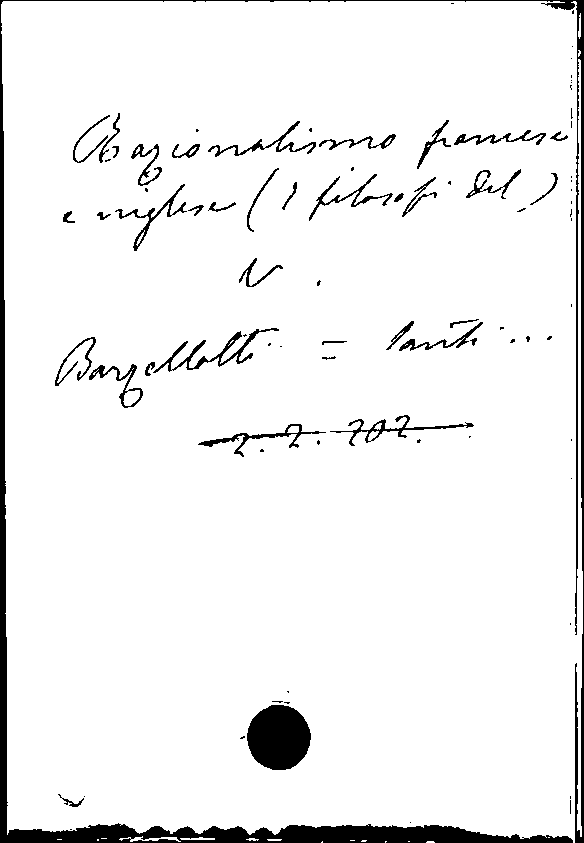 Razionalismo francese
e inglese (I filosofi del)
V.
Barzellotti = Santi...
2.2.202.